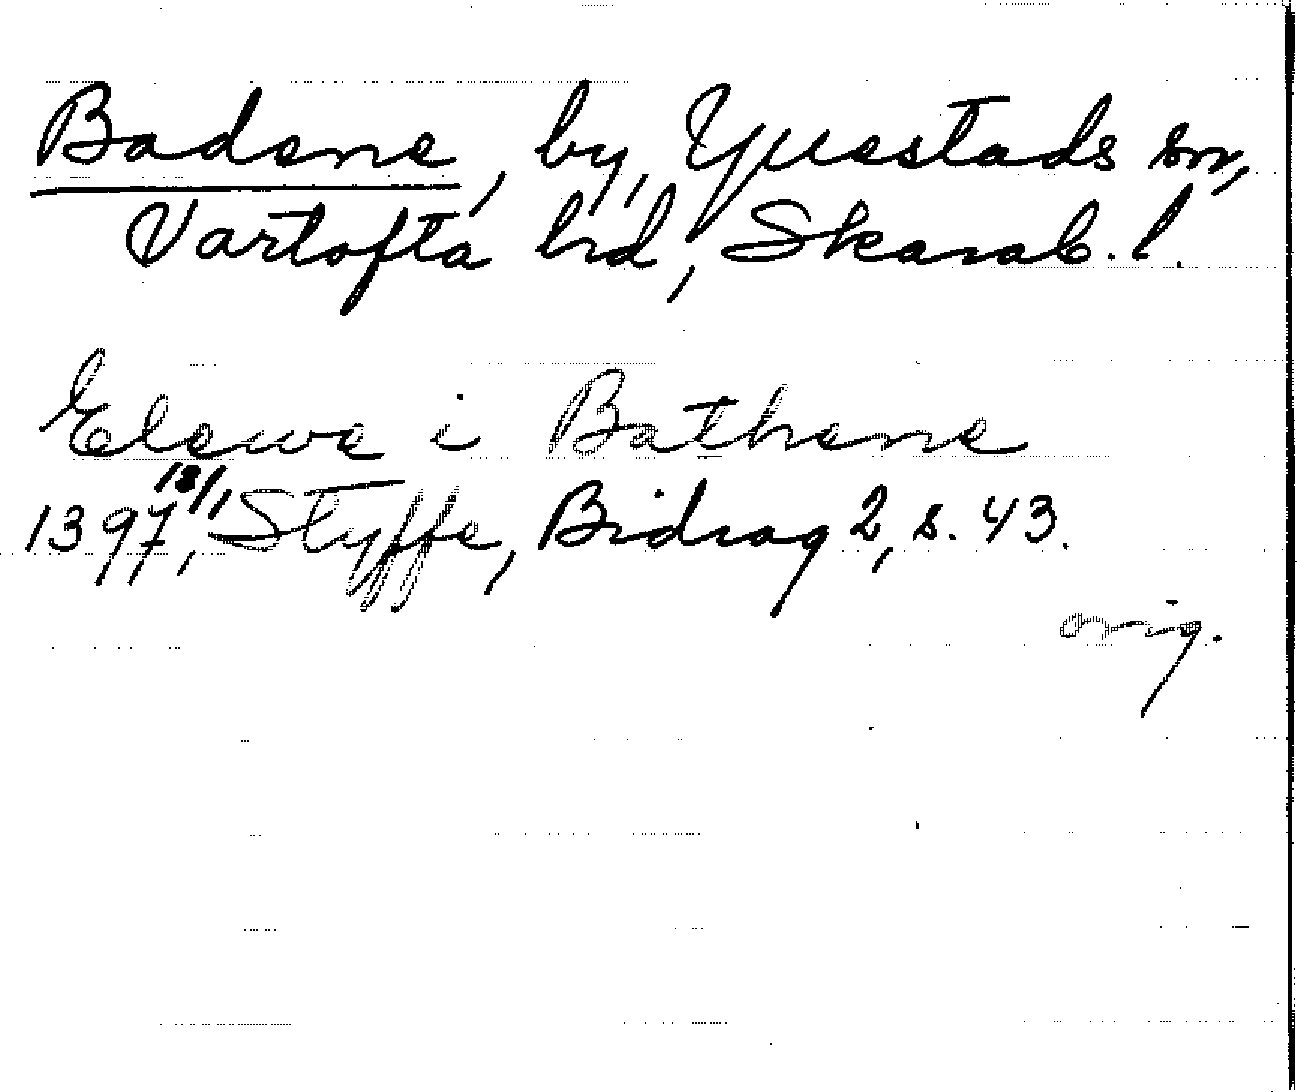 Badene, by, Yllestads sn,
Vartofta hd, Skarab. l.
Elawe i Bathene
1397 18/1, Styffe, Bidrag 2, s. 43.
orig.